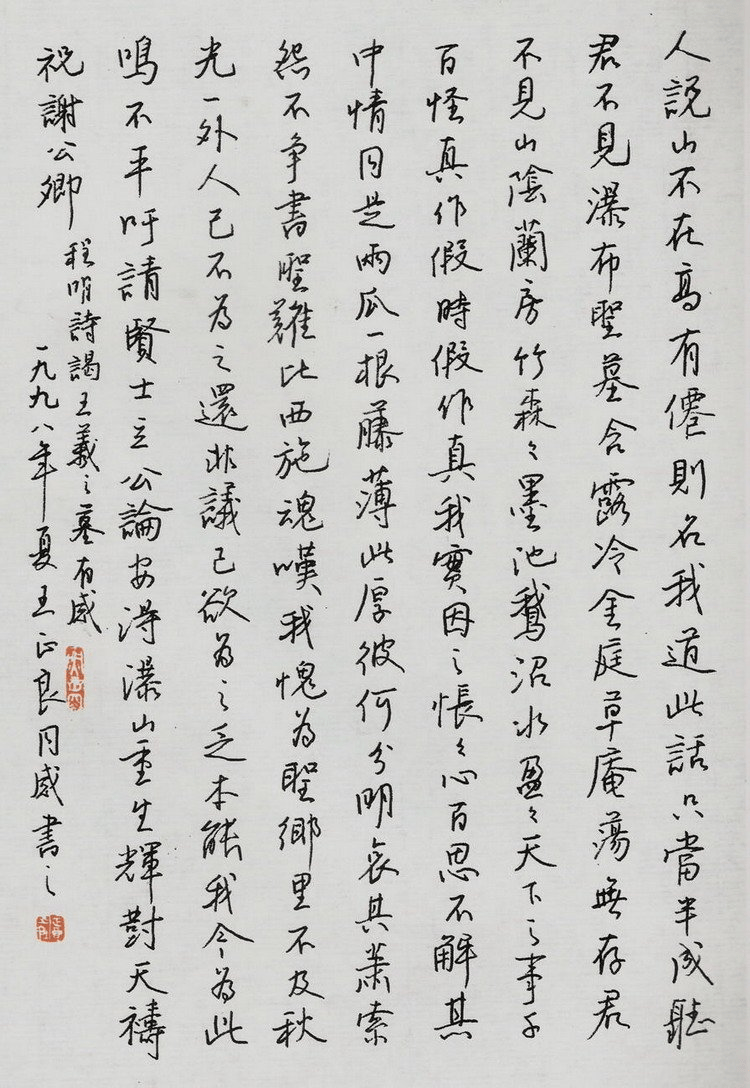 人説山不在高有僊則名我道此話只當半成聽
君不見瀑布聖墓含露冷金庭草庵蕩無存君
不見山陰蘭房竹森々墨池鵝沼水盈々天下之事千
百怪真作假時假作真我實因之悵々心百思不解其
中情同是兩瓜一根藤薄此厚彼何分明哀其蕭索
怨不争書聖難比西施魂嘆我愧為聖鄉里不及秋
光一外人已不為之還非議已欲為之乏本能我今為此
鳴不平吁請賢士立公論安得瀑山重生輝對天禱
祝謝公卿
程明詩謁王羲之墓有感
一九九八年夏王正良同感書之